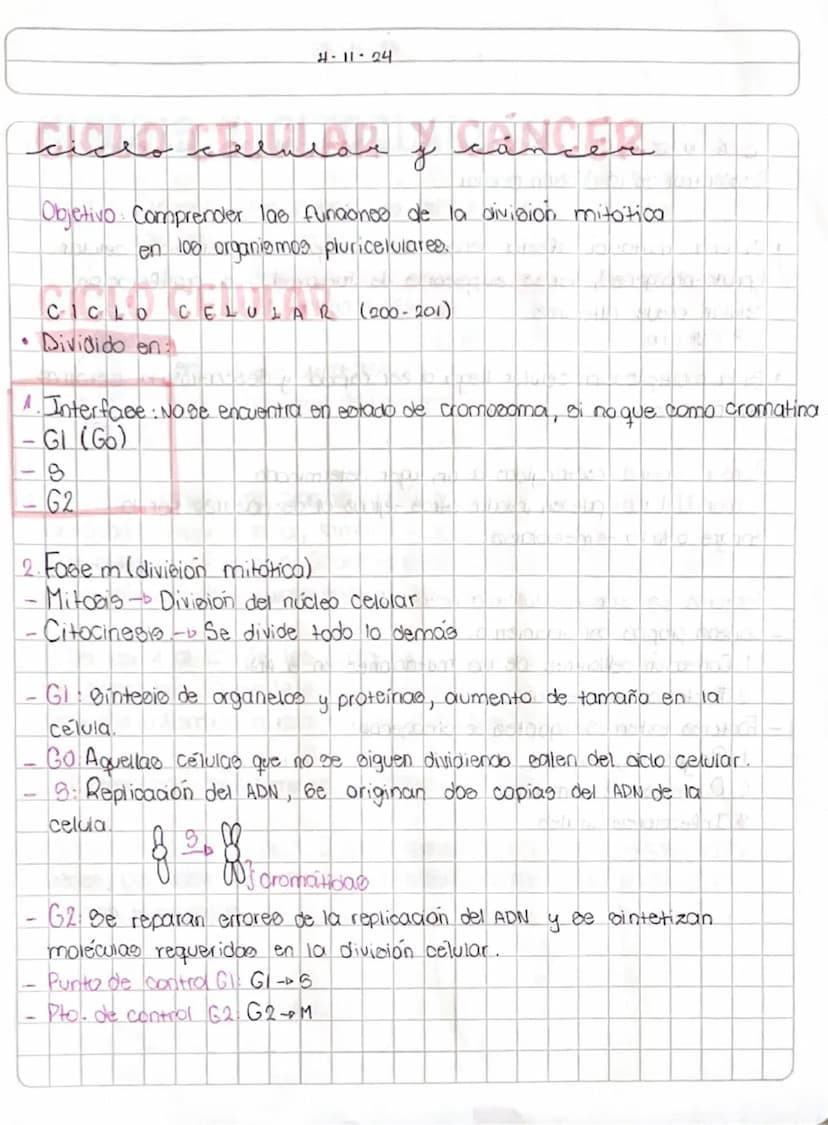 4-11-24
CICLO CELULAR Y CÁNCER
ciclo celular y cáncer
Objetivo: Comprender las funciones de la división mitótica
en los organismos pluricelulares.
CICLO CELULAR
CICLO CELULAR (200-201)
• Dividido en:
1. Interfase: No se encuentra en estado de cromozoma, si no que como cromatina
- G1 (G0)
- S
- G2
2. Fase m (división mitótica)
- Mitosis → División del núcleo celular
- Citocinesis → Se divide todo lo demás
- G1: Síntesis de organelos y proteínas, aumento de tamaño en la
célula.
- G0: Aquellas células que no se siguen dividiendo salen del ciclo celular.
- S: Replicación del ADN, se originan dos copias del ADN de la
celula.
S →
} cromátidas
- G2: Se reparan errores de la replicación del ADN y se sintetizan
moléculas requeridas en la división celular.
- Punto de control G1: G1 → S
- Pto. de control G2: G2 → M